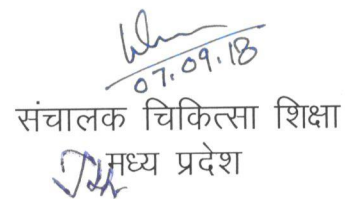 07.09.18
संचालक चिकित्सा शिक्षा
मध्य प्रदेश